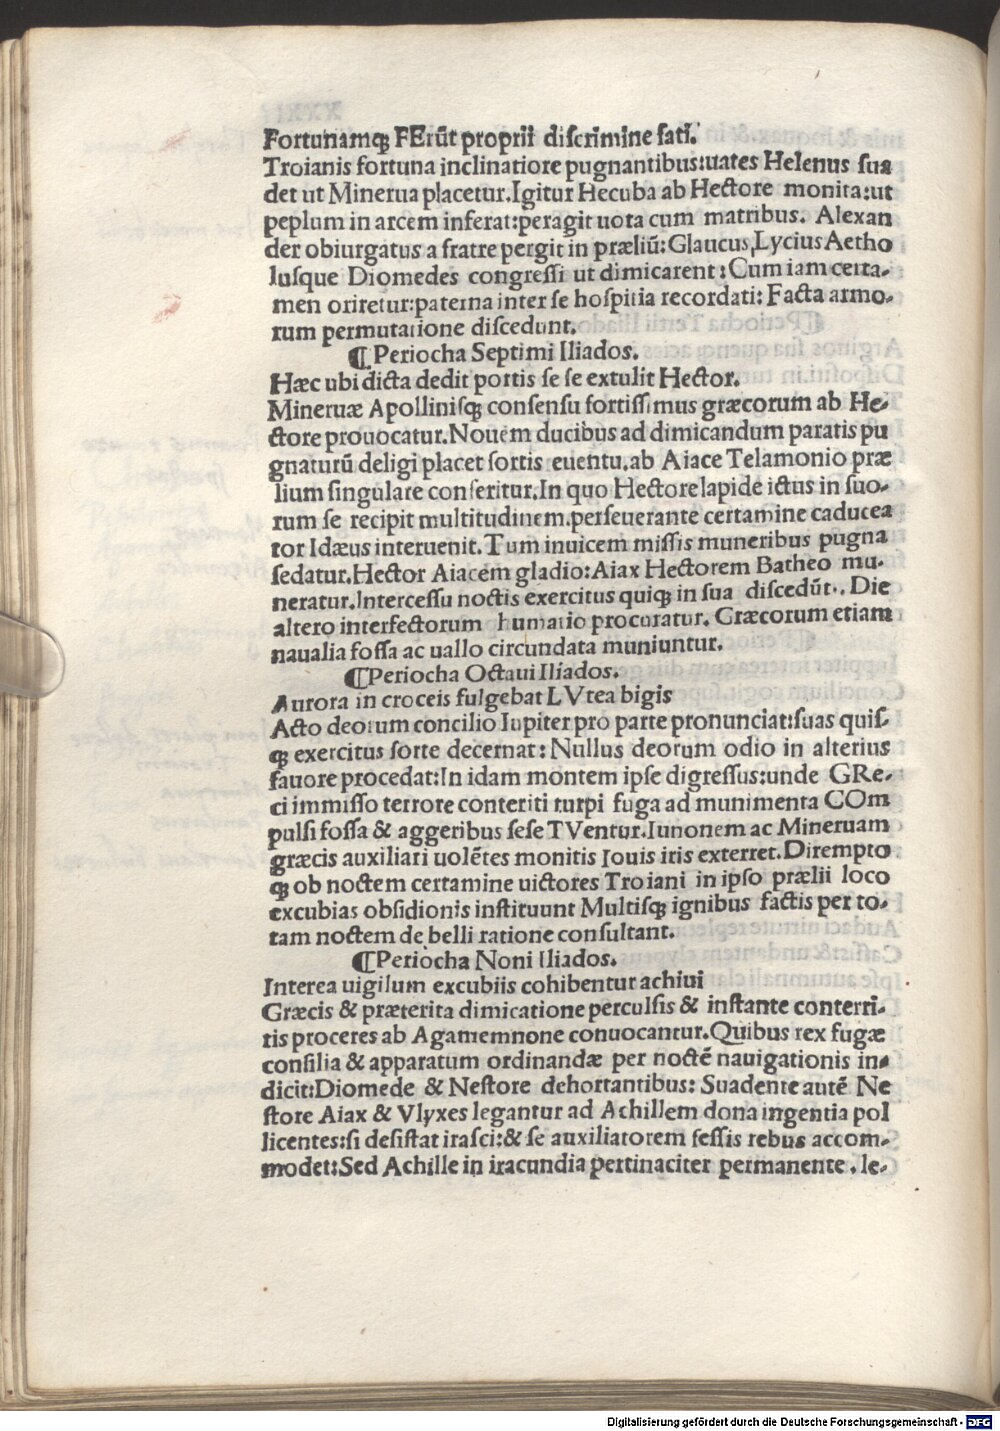 Fortunamqꝫ FErũt proprii discrimine fati.
Troianis fortuna inclinatiore pugnantibus:uates Helenus sua
det ut Minerua placetur.Igitur Hecuba ab Hectore monita:ut
peplum in arcem inferat:peragit uota cum matribus. Alexan
der obiurgatus a fratre pergit in præliũ:Glaucus,Lycius Aetho
lusque Diomedes congressi ut dimicarent:Cum iam certa-
men oriretur:paterna inter se hospitia recordati:Facta armo-
rum permutatione discedunt.
¶Periocha Septimi Iliados.
Hæc ubi dicta dedit portis se se extulit Hector.
Mineruæ Apollinisqꝫ consensu fortissimus græcorum ab He-
ctore prouocatur.Nouem ducibus ad dimicandum paratis pu
gnaturũ deligi placet sortis euentu.ab Aiace Telamonio præ
lium singulare conseritur.In quo Hectore lapide ictus in suo-
rum se recipit multitudinem.perseuerante certamine caducea
tor Idæus interuenit.Tum inuicem missis muneribus pugna
sedatur.Hector Aiacem gladio:Aiax Hectorem Batheo mu-
neratur.Intercessu noctis exercitus quiqꝫ in sua discedũt. Die
altero interfectorum humatio procuratur. Græcorum etiam
naualia fossa ac uallo circundata muniuntur.
¶Periocha Octaui Iliados.
Aurora in croceis fulgebat LVtea bigis
Acto deorum concilio Iupiter pro parte pronunciat:suas quis-
qꝫ exercitus sorte decernat:Nullus deorum odio in alterius
fauore procedat:In idam montem ipse digressus:unde GRe-
ci immisso terrore conteriti turpi fuga ad munimenta COm
pulsi fossa & aggeribus sese TVentur.Iunonem ac Mineruam
græcis auxiliari uolẽtes monitis Iouis iris exterret.Dirempto
qꝫ ob noctem certamine uictores Troiani in ipso prælii loco
excubias obsidionis instituunt Multisqꝫ ignibus factis per to-
tam noctem de belli ratione consultant.
¶Periocha Noni Iliados.
Interea uigilum excubiis cohibentur achiui
Græcis & præterita dimicatione perculsis & instante conterri-
tis proceres ab Agamemnone conuocantur.Quibus rex fugæ
consilia & apparatum ordinandæ per noctẽ nauigationis in-
dicit:Diomede & Nestore dehortantibus: Suadente autẽ Ne
store Aiax & Vlyxes legantur ad Achillem dona ingentia pol
licentes:si desistat irasci:& se auxiliatorem fessis rebus accom-
modet:Sed Achille in iracundia pertinaciter permanente.le-
Digitalisierung gefördert durch die Deutsche Forschungsgemeinschaft - DFG